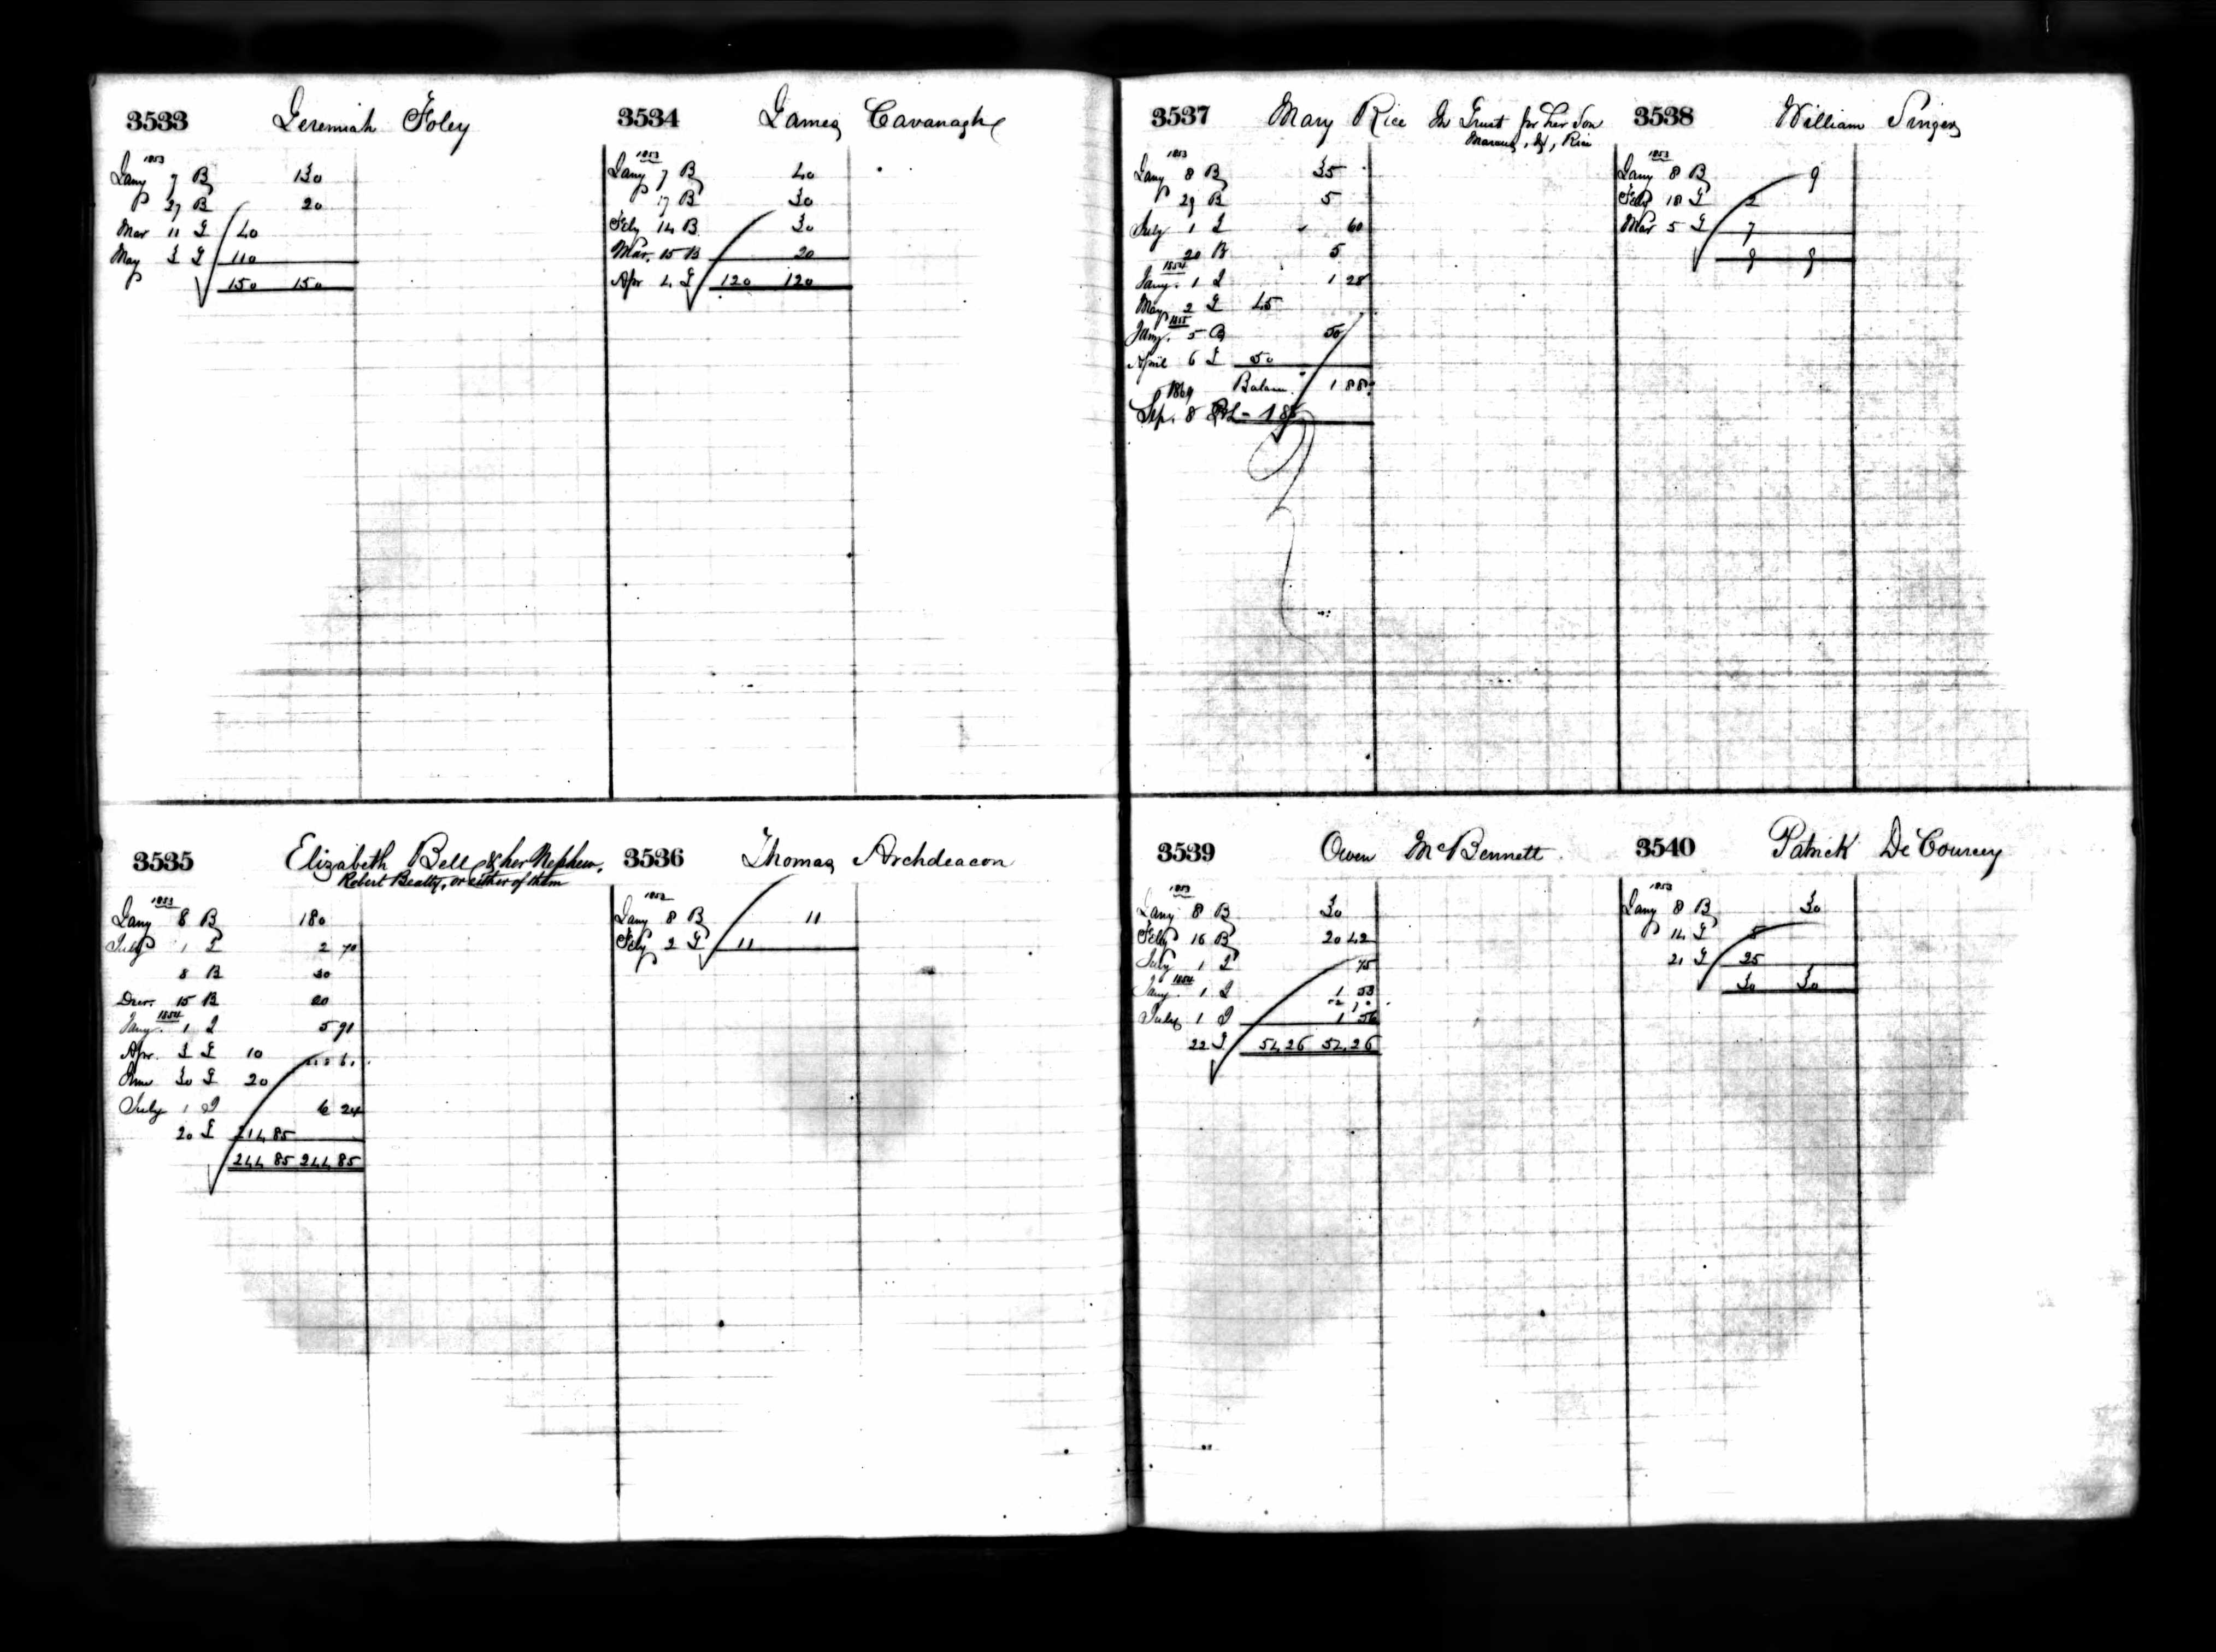 3533 Jeremiah Foley
1853
Jany 7 B 130
27 B 20
Mar 11 T 40
May 3 T 110
150 150
3534 James Cavanagh
1853
Jany 7 B 40
17 B 30
Feby 14 B 30
Mar. 15 B 20
Apr 4 T 120 120
3535 Elizabeth Bell & her Nephew,
Robert Beatty, or either of them
1853
Jany 8 B 180
July 1 I 2 70
8 B 30
15 B 20
1854
Jany. 1 I 5 91
Apr. 3 T 10
June 30 T 20
July 1 I 6 24
20 T 214 85
244 85 244 85
3536 Thomas Archdeacon
1853
Jany 8 B 11
Feby 2 T 11
3537 Mary Rice In Trust for her Son
Rice
1853
Jany 8 B 35
29 B 5
July 1 I 60
20 B 5
1854
Jany. 1 I 1 28
May 2 T 45
1855
Jany. 5 B 50
April 6 T 50
1869 Balance 1 88
Sep. 8 1 88
3538 William Singer
1853
Jany 8 B 9
Feby 18 T 2
Mar 5 T 7
9 9
3539 Owen McBennett
1853
Jany 8 B 30
Feby 16 B 20 42
July 1 I 75
1854
Jany. 1 I 1 53
July 1 I 1 56
22 T 54,26 54,26
3540 Patrick DeCourcey
1853
Jany 8 B 30
14 T 5
21 T 25
30 30